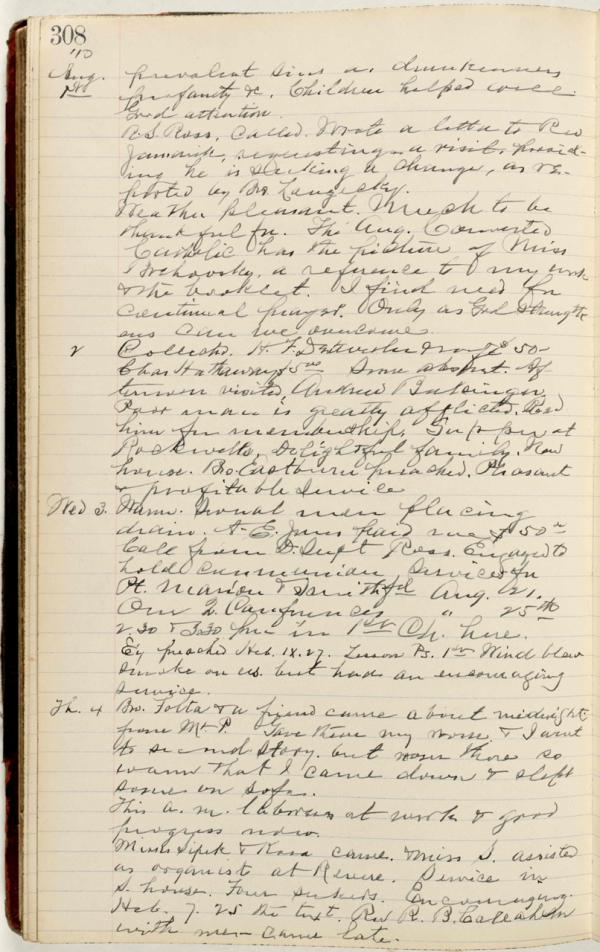 308
'10
Aug. prevalent sins as drunkenness
1st profanity &c. Children helped well.
Good attention.
R.S. Ross, called. Wrote a letter to Rev
requesting a visit, provid-
ing he is seeking a change, as re-
ported by Bro.
Weather pleasant. Much to be
thankful for. The Aug. Converted
Catholic has the picture of Miss
a reference to my work
& the booklet. I find need for
continual prayer. Only as God strength-
ens can we overcome.
2 Collected. H. F. $50-
Chas Hathaway $5.00 Some absent. Af
ternoon visited Andrew
Poor man is greatly afflicted. Rec'd
him for membership. Supper at
Rockwells, delightful family. New
house. Bro. Eastburn preached. Pleasant
& profitable service
Wed 3. Warm. Several men placing
drain. A. E. paid me $50.00
Call from D. Supt Ross. Engaged to
hold communion services for
Pt. Marion & Smithfd Aug. 21.
Our 2 Conferences " 25th
2.30 & 3.30 in 1st Ch. here.
Ev preached Heb. IX.27. Lesson Ps. 1st Wind blew
smoke on us. but had an encouraging
service.
Th. 4 Bro. Folta & a friend came about midnight
from Mt P. Gave them my room & I went
to second story. but room there so
warm that I came down & slept
some on sofa.
This a.m. laborers at work & good
progress now.
Misses Sipek & came. & Miss S. assisted
as organist at Revere. Service in
S. house. Four seekers. Encouraging.
Heb. 7. 25 the text. Rev R. B. Callahan
with me - came late.